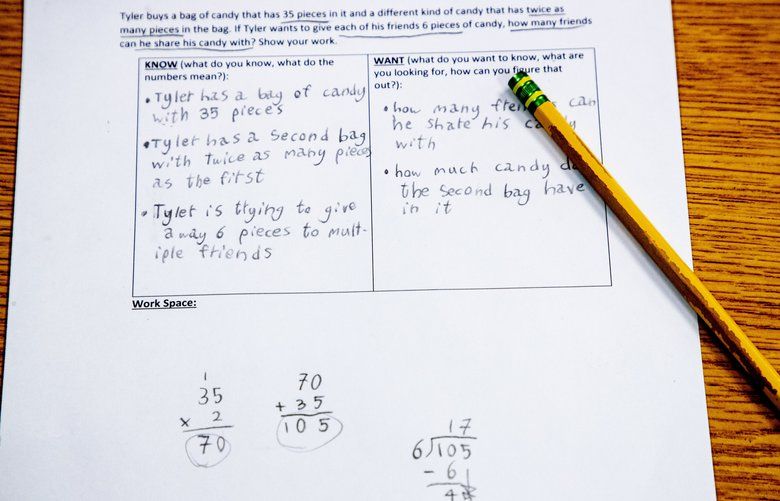 Tyler buys a bag of candy that has 35 pieces in it and a different kind of candy that has twice as
many pieces in the bag. If Tyler wants to give each of his friends 6 pieces of candy, how many friends
can he share his candy with? Show your work.
KNOW (what do you know, what do the
numbers mean?):
• Tyler has a bag of candy
with 35 pieces
• Tyler has a second bag
with twice as many pieces
as the first
• Tyler is trying to give
away 6 pieces to mult-
iple friends
WANT (what do you want to know, what are
you looking for, how can you figure that
out?):
• how many can
he share his
with
• how much candy
the second bag have
in it
Work Space:
1
35
x 2
70
70
+ 35
105
17
6)105
- 6